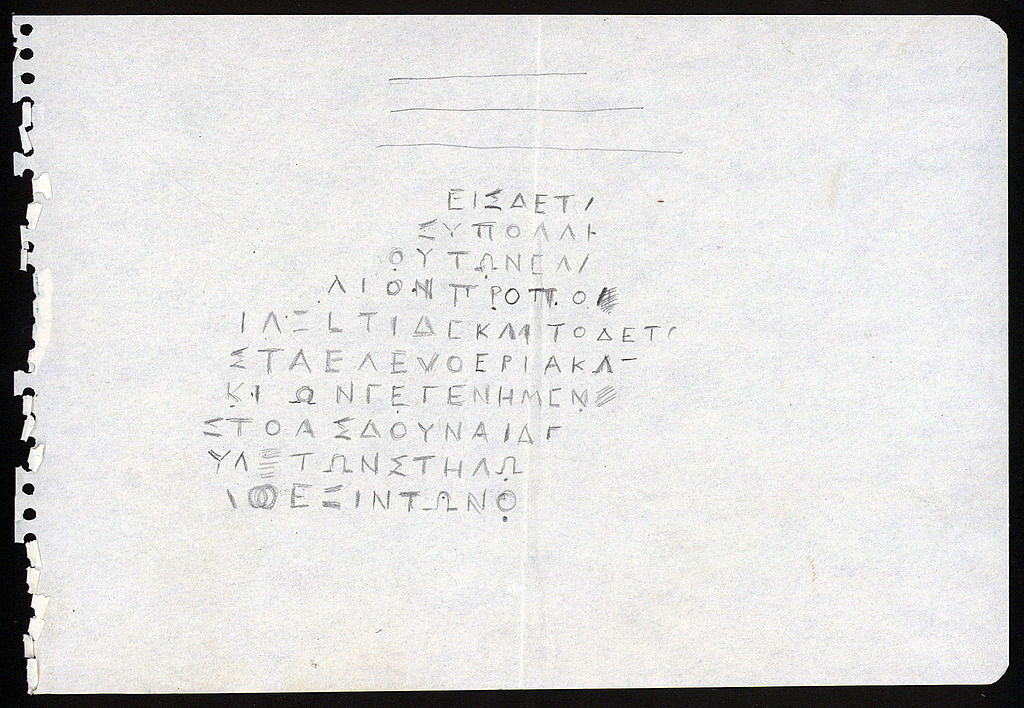 ΕΙΣΔΕΤ
ΞΥΠΟΛΛΗ
ΟΥΤΩΝΕΛ
ΛΙΟΝΠΡΟΠΟ
ΙΛΞΕΤΙΔΕΚΑΙΤΟΔΕΤ
ΣΤΑΕΛΕΨΟΕΡΙΑΚΑΤ
ΚΙΩΝΓΕΓΕΝΗΜΕΝ
ΣΤΟΑΣΔΟΥΝΑΙΔΓ
ΥΛΞΤΩΝΣΤΗΛΩ
ΘΕΞΙΝΤΩΝΟ